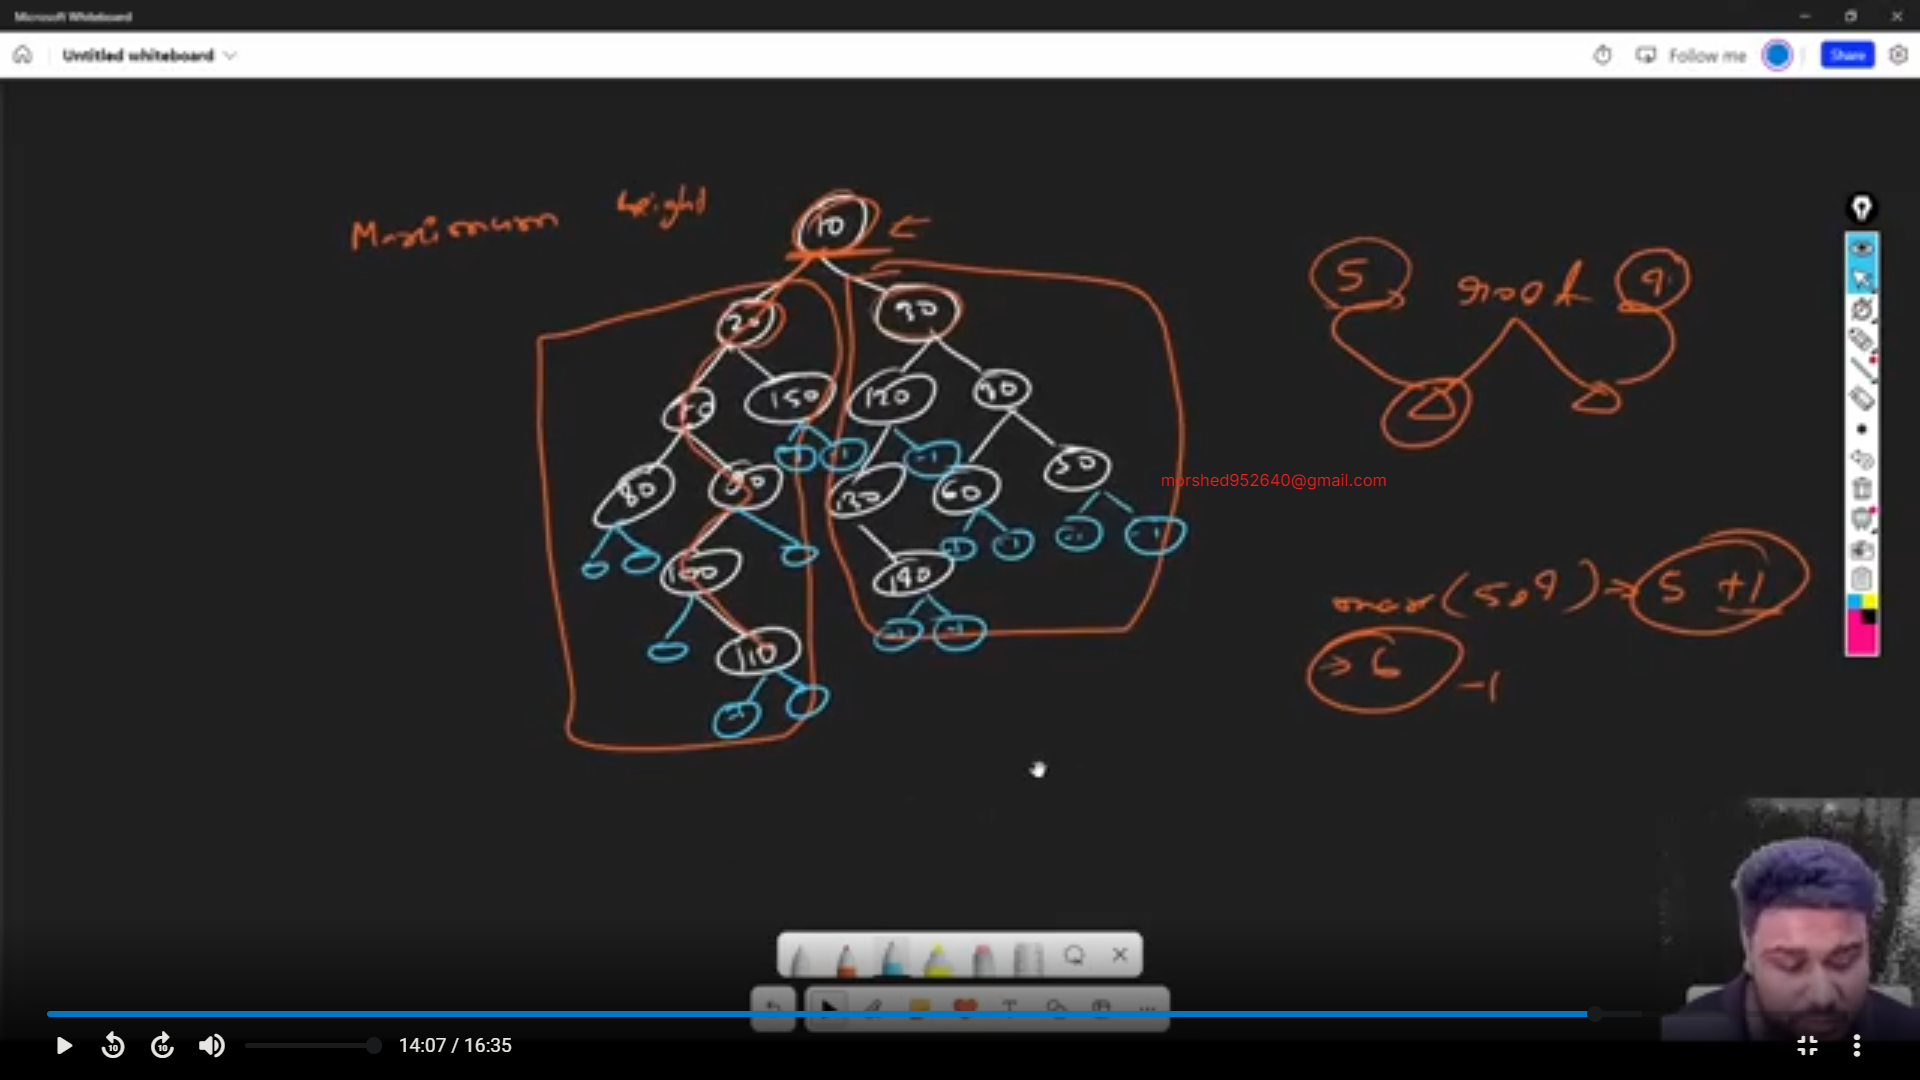 Microsoft Whiteboard
Untitled whiteboard
Follow me
Share
Maximum height
10
20
30
150
120
90
80
50
130
60
-1
-1
-1
100
140
-1
-1
-1
110
-1
-1
5 root 4
max(5,4) => 5 +1
=> 6 -1
morshed952640@gmail.com
10
10
14:07 / 16:35